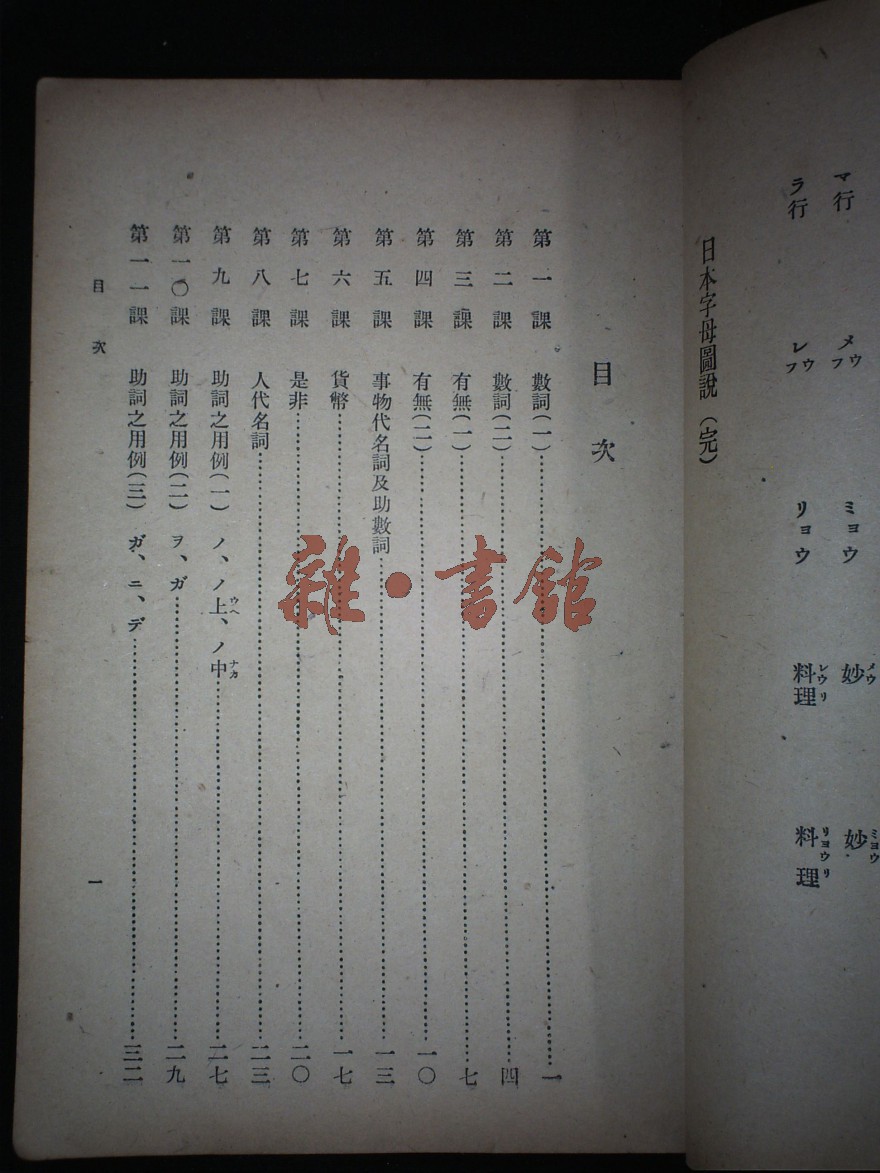 マ行　メウ　フ　ミョウ　妙　メウ　妙　ミョウ
ラ行　レウ　フ　リョウ　料理　レウリ　料理　リョウリ
日本字母圖說（完）
目次
第一課　數詞（一）……一
第二課　數詞（二）……四
第三課　有無（一）……七
第四課　有無（二）……一〇
第五課　事物代名詞及助數詞……一三
第六課　貨幣……一七
第七課　是非……二〇
第八課　人代名詞……二三
第九課　助詞之用例（一）ノ、ノ上、ノ中……二七
ウヘ　ナカ
第一〇課　助詞之用例（二）ヲ、ガ……二九
第一一課　助詞之用例（三）ガ、ニ、デ……三二
目次　一
雜·書館